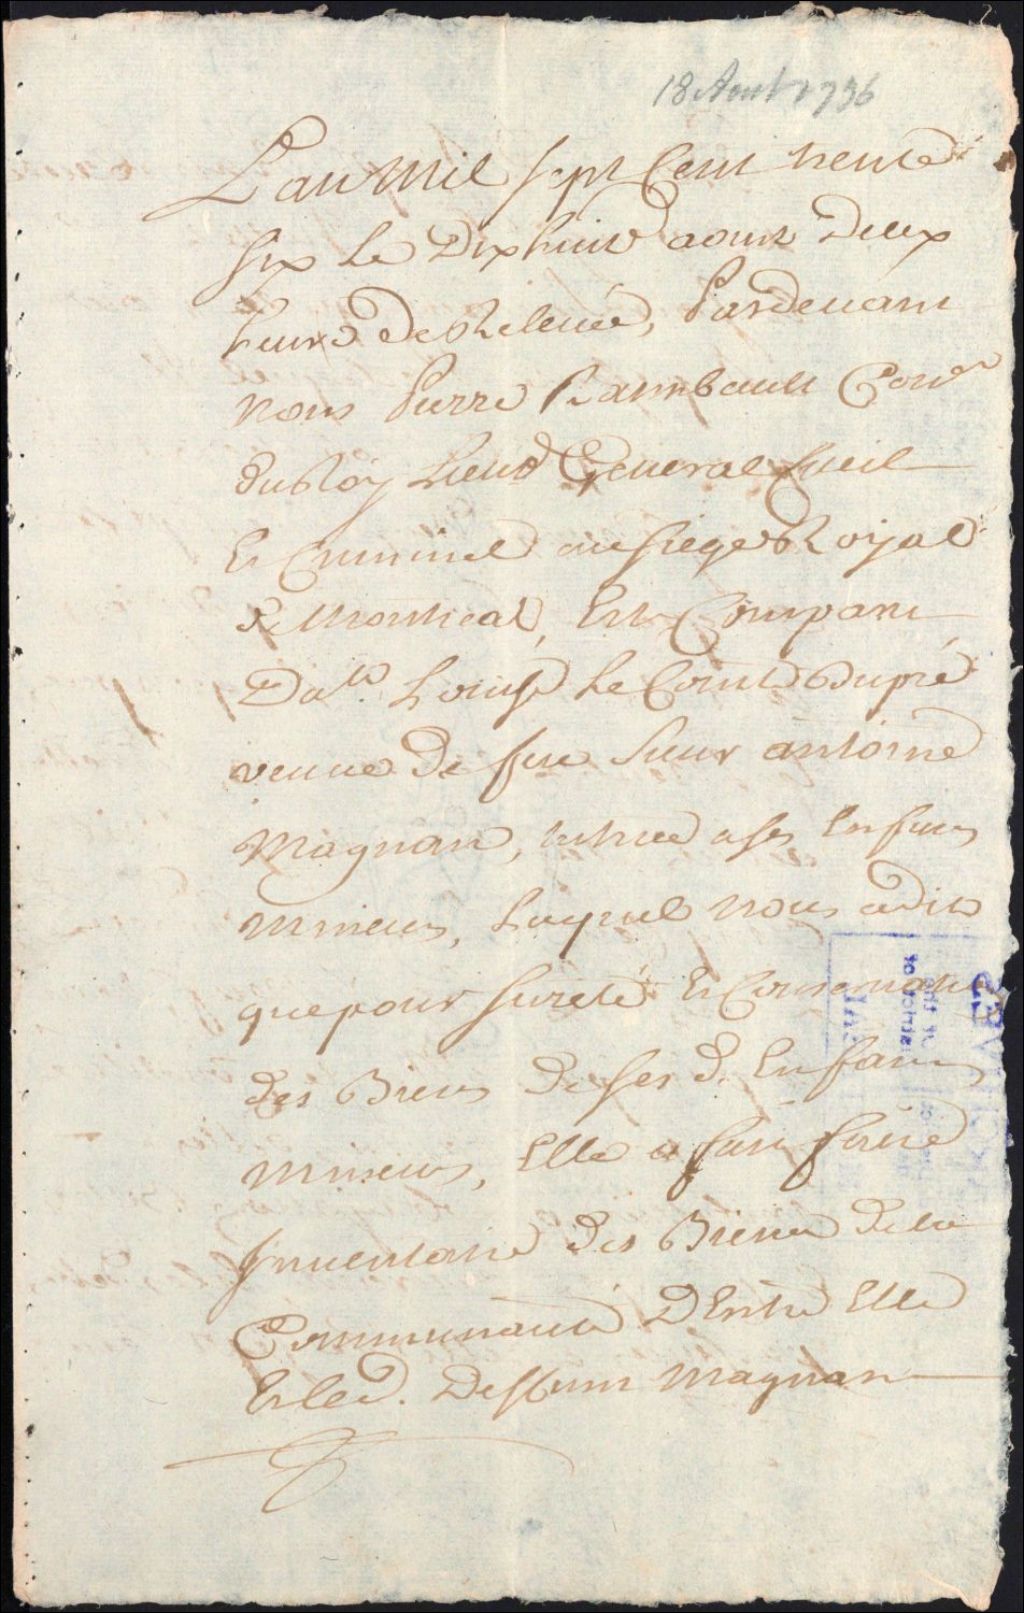 18 Aout 1736
L'an Mil Sept Cent trente
Six Le Dix huit aoust Deux
heures De Relevée, Pardevant
Nous Pierre Raimbault Coner
du Roy Lieut General Civil
Et Criminel au siege Royal
de Montreal, Est Comparu
Dale. Louise Le Comte Dupré
veuve de feu Sieur antoine
Magnan, tutrice a ses Enfans
Mineurs, Laquelle nous a dit
que pour sureté Et Conservation
des Biens de ses d. Enfans
Mineurs, Elle a fait faire
Inventaire des Biens de la
Communauté D'Entre Elle
Et led. Deffunt Magnan